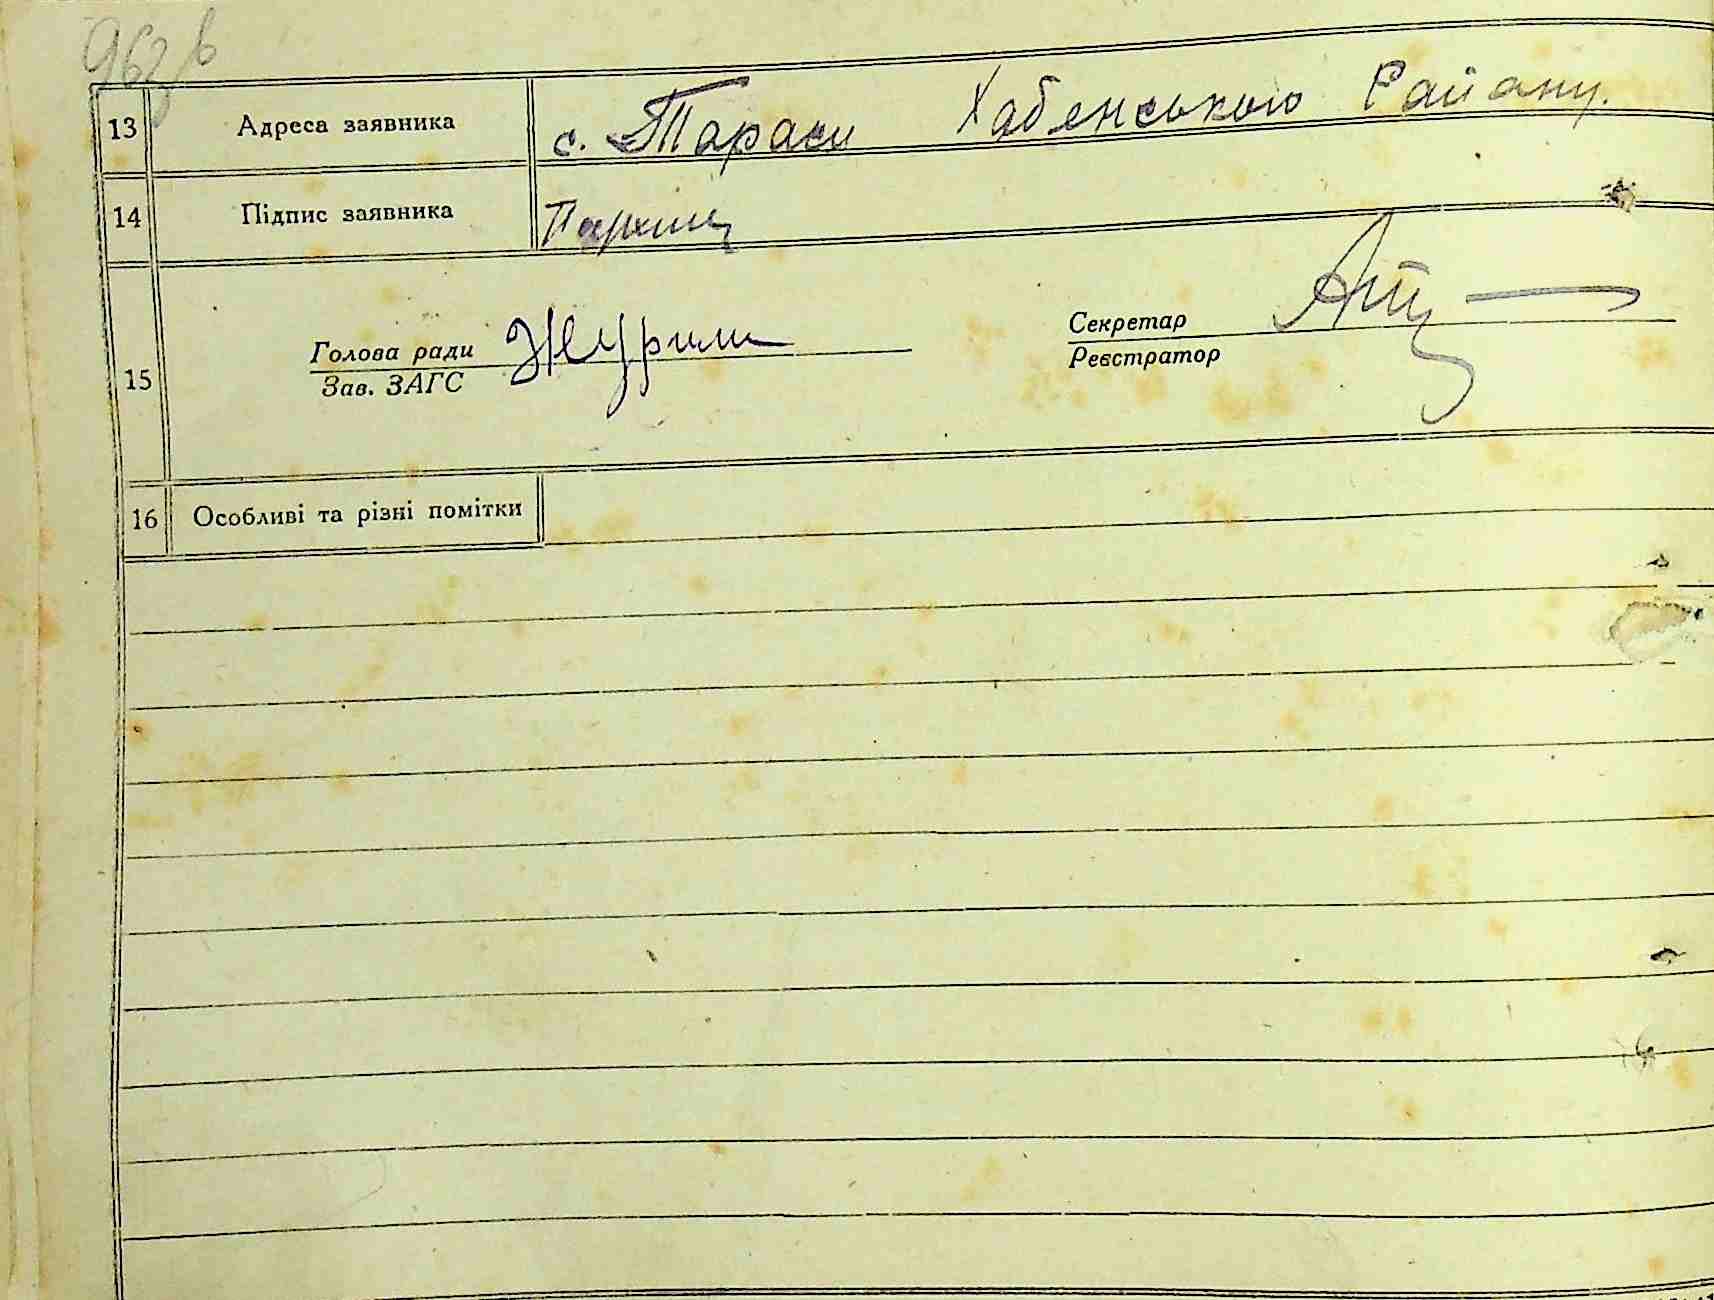 963 в
13 Адреса заявника с. Тараси Хабенського Району.
14 Підпис заявника
Голова ради Секретар
15 Зав. ЗАГС Реєстратор
16 Особливі та різні помітки